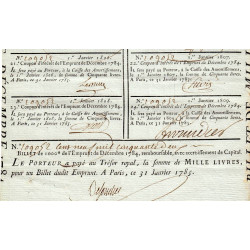 N.° 109052 1.er Janvier 1806.
21.e Coupon d'intérêt de l'Emprunt de Décembre 1784.
Il sera payé au Porteur, à la Caisse des Amortissemens,
le 1.er Janvier 1806, la somme de Cinquante livres.
A Paris, ce 31 Janvier 1785.
N.° 109052 1.er Janvier 1807.
Il sera payé au Porteur, à la Caisse des Amortissemens,
le 1.er Janvier 1807, la somme de Cinquante livres.
A Paris, ce 31 Janvier 1785.
N.° 109052 1.er Janvier 1808.
Il sera payé au Porteur, à la Caisse des Amortissemens,
le 1.er Janvier 1808, la somme de Cinquante livres.
A Paris, ce 31 Janvier 1785.
N.° 109052 1.er Janvier 1809.
Il sera payé au Porteur, à la Caisse des Amortissemens,
le 1.er Janvier 1809, la somme de Cinquante livres.
A Paris, ce 31 Janvier 1785.
109052 Cent neuf mil cinquante deux
BILLET de 1000 lt de l'Emprunt de Décembre 1784, remboursable, avec accroissement de Capital.
LE PORTEUR a payé au Trésor royal, la somme de MILLE LIVRES,
pour un Billet dudit Emprunt. A Paris, ce 31 Janvier 1785.